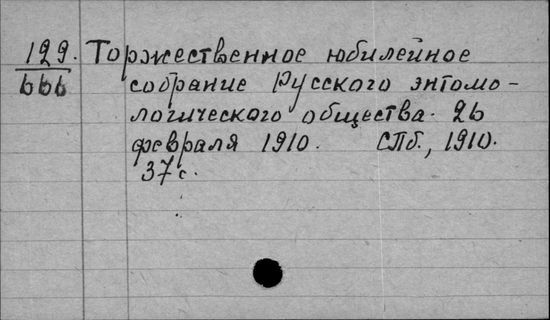 129. Торжественное юбилейное
666 собрание Русского энтомо-
логического общества. 26
февраля 1910. СПб., 1910.
37 с.